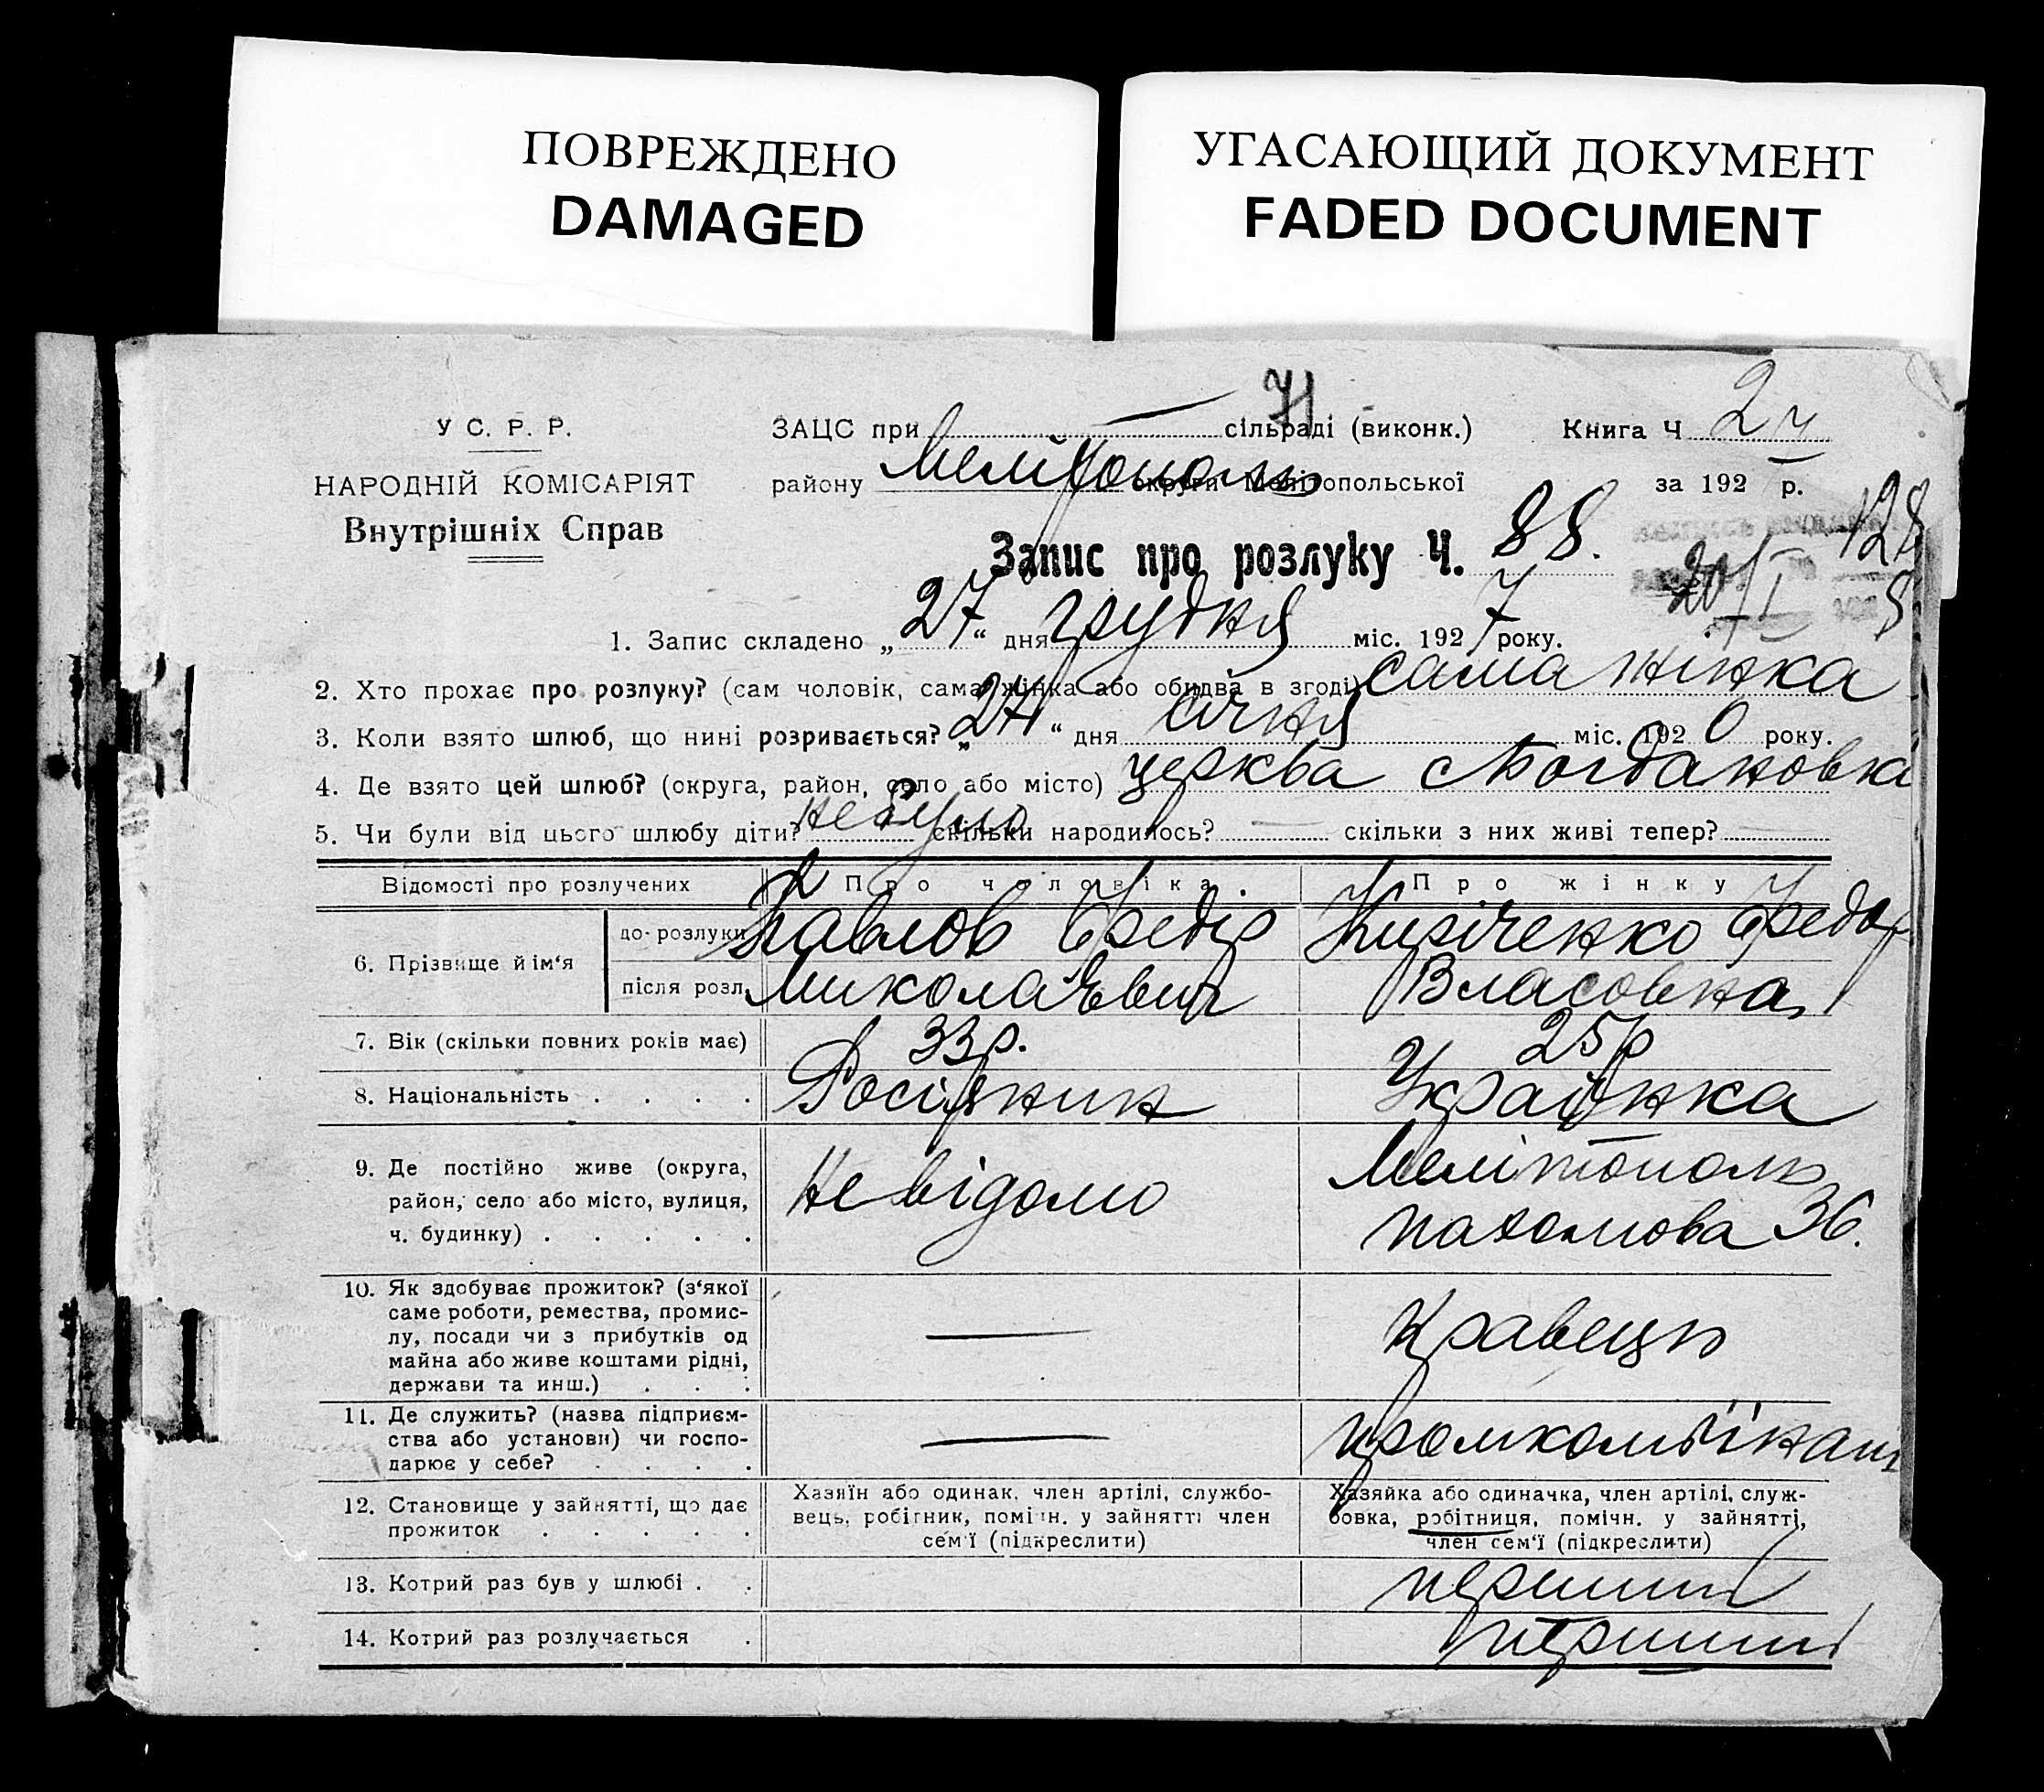 ПОВРЕЖДЕНО
DAMAGED
УГАСАЮЩИЙ ДОКУМЕНТ
FADED DOCUMENT
71
У С. Р. Р.
НАРОДНІЙ КОМІСАРІЯТ
Внутрішніх Справ
ЗАЦС при — сільраді (виконк.)
Книга Ч 2
району Мелітополь округи Мелітопольської
за 192 р.
Запис про розлуку Ч. 88.
128
20/I
8
1. Запис складено „27“ дня грудня міс. 1927 року.
2. Хто прохає про розлуку? (сам чоловік, сама жінка або обидва в згоді) сама жінка
3. Коли взято шлюб, що нині розривається? „24“ дня січня міс. 1920 року.
4. Де взято цей шлюб? (округа, район, село або місто) церква с Богдановка
5. Чи були від цього шлюбу діти? не було скільки народилось? — скільки з них живі тепер? —
Відомості про розлучених
Про чоловіка.
Про жінку
6. Прізвище й ім‘я
до розлуки
Павлов Федір
Кіріченко Федо
після розл.
Миколаєвич
Власовна
7. Вік (скільки повних років має)
33 р.
25 р
8. Національність . . . .
Росіянин
Українка
9. Де постійно живе (округа,
район, село або місто, вулиця,
ч. будинку) . . . . .
Невідомо
Мелітополь
Пахомова 36.
10. Як здобуває прожиток? (з‘якої
саме роботи, ремества, промис-
лу, посади чи з прибутків од
майна або живе коштами рідні,
держави та инш.) . . .
—
Кравець
11. Де служить? (назва підприєм-
ства або установи) чи госпо-
дарює у себе? . . . .
—
Промкомбінат
12. Становище у зайнятті, що дає
прожиток . . . . .
Хазяїн або одинак, член артілі, службо-
вець, робітник, помічн. у зайнятті член
сем‘ї (підкреслити)
Хазяйка або одиначка, член артілі, служ-
бовка, робітниця, помічн. у зайнятті,
член сем‘ї (підкреслити)
13. Котрий раз був у шлюбі . .
перший
14. Котрий раз розлучається .
перший